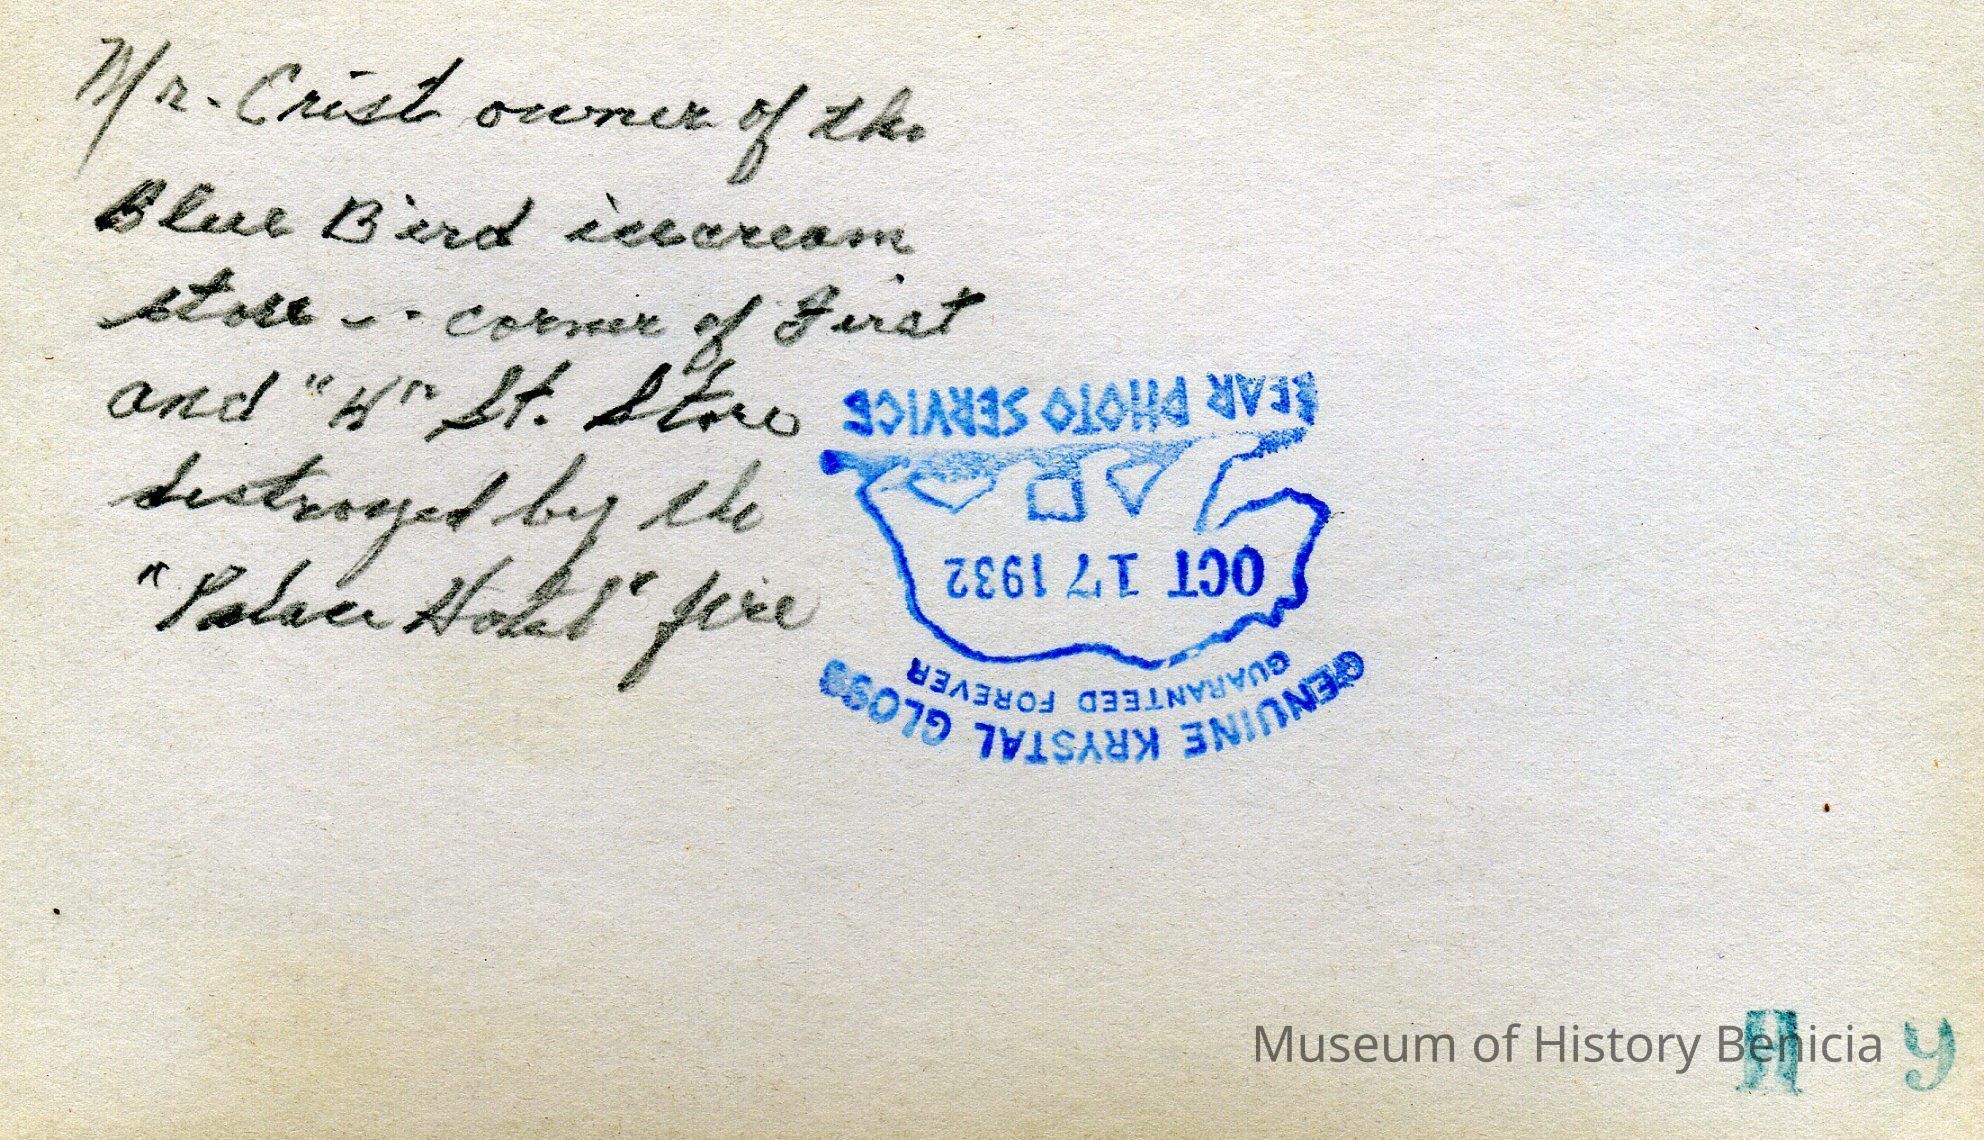 Mr. Crist owner of the
Blue Bird icecream
store -- corner of First
and "H" St. Store
destroyed by the
"Palace Hotel" fire
GENUINE KRYSTAL GLOSS
GUARANTEED FOREVER
OCT 17 1932
BEAR PHOTO SERVICE
Museum of History Benicia
H 9